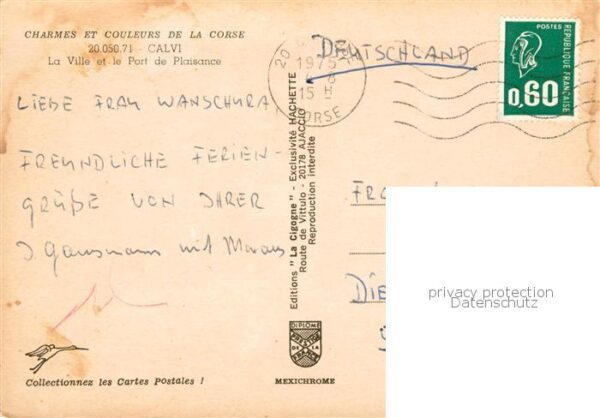 CHARMES ET COULEURS DE LA CORSE
20.050.71 - CALVI
La Ville et le Port de Plaisance
LIEBE FRAU WANSCHURA
FREUNDLICHE FERIEN-
GRÜßE VON IHRER
mit
Collectionnez les Cartes Postales !
Editions "La Cigogne" - Exclusivité HACHETTE
Route de Vittulo - 20178 AJACCIO
Reproduction interdite
DIPLOME
DE LA
MEXICHROME
20
1975
15 H
CORSE
DEUTSCHLAND
POSTES
REPUBLIQUE FRANÇAISE
0,60
privacy protection
Datenschutz